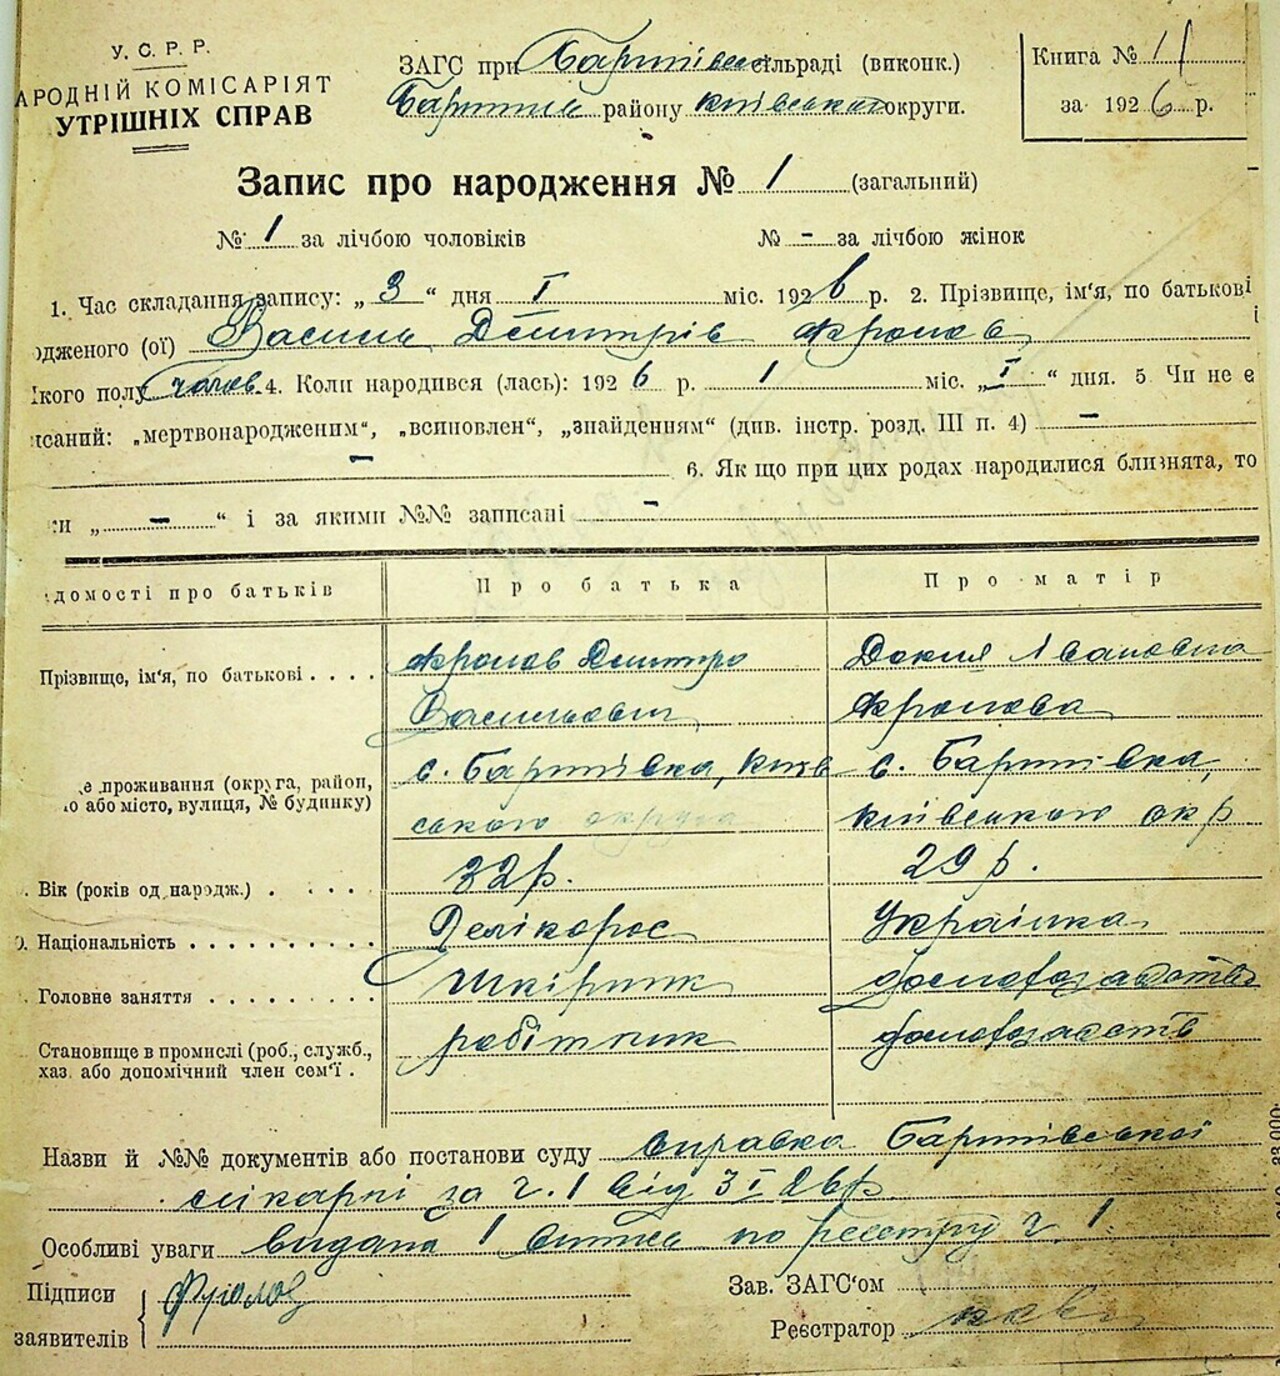 У. С. Р. Р.
АРОДНІЙ КОМІСАРІЯТ
УТРІШНІХ СПРАВ
ЗАГС при сільраді (виконк.)
району Київського округи.
Книга № 1
за 1926 р.
Запис про народження № 1 (загальний)
№ 1 за лічбою чоловіків
№ - за лічбою жінок
1. Час складання запису: „ 3 “ дня I міс. 1926 р. 2. Прізвище, ім'я, по батькові
одженого (ої) Василь Дмитрів Фролов
кого полу чолов. 4. Коли народився (лась): 1926 р. 1 міс. „ I “ дня. 5 Чи не є
исаний: „мертвонародженим“, „всиновлен“, „знайденням“ (див. інстр. розд. III п. 4) -
- 6. Як що при цих родах народилися близнята, то
и „ - “ і за якими №№ записані -
домості про батьків
Про батька
Про матір
Прізвище, ім'я, по батькові
Фролов Дмитро
Васильович
Докия Івановна
Фролова
е проживання (округа, район,
о або місто, вулиця, № будинку)
с. Бартківка, Київ
ського округа
с. Бартківка,
Київського окр
Вік (років од народж.)
32 р.
29 р.
Національність
Велікорос
Українка
Головне заняття
Шкірник
Становище в промислі (роб., служб.,
хаз. або допомічний член сем'ї
робітник
Назви й №№ документів або постанови суду Справка
лікарні за ч. 1 від 3 I 26 р
Особливі уваги видана 1 по реєстру ч. 1
Підписи
заявителів
Фролов
Зав. ЗАГС'ом
Реєстратор